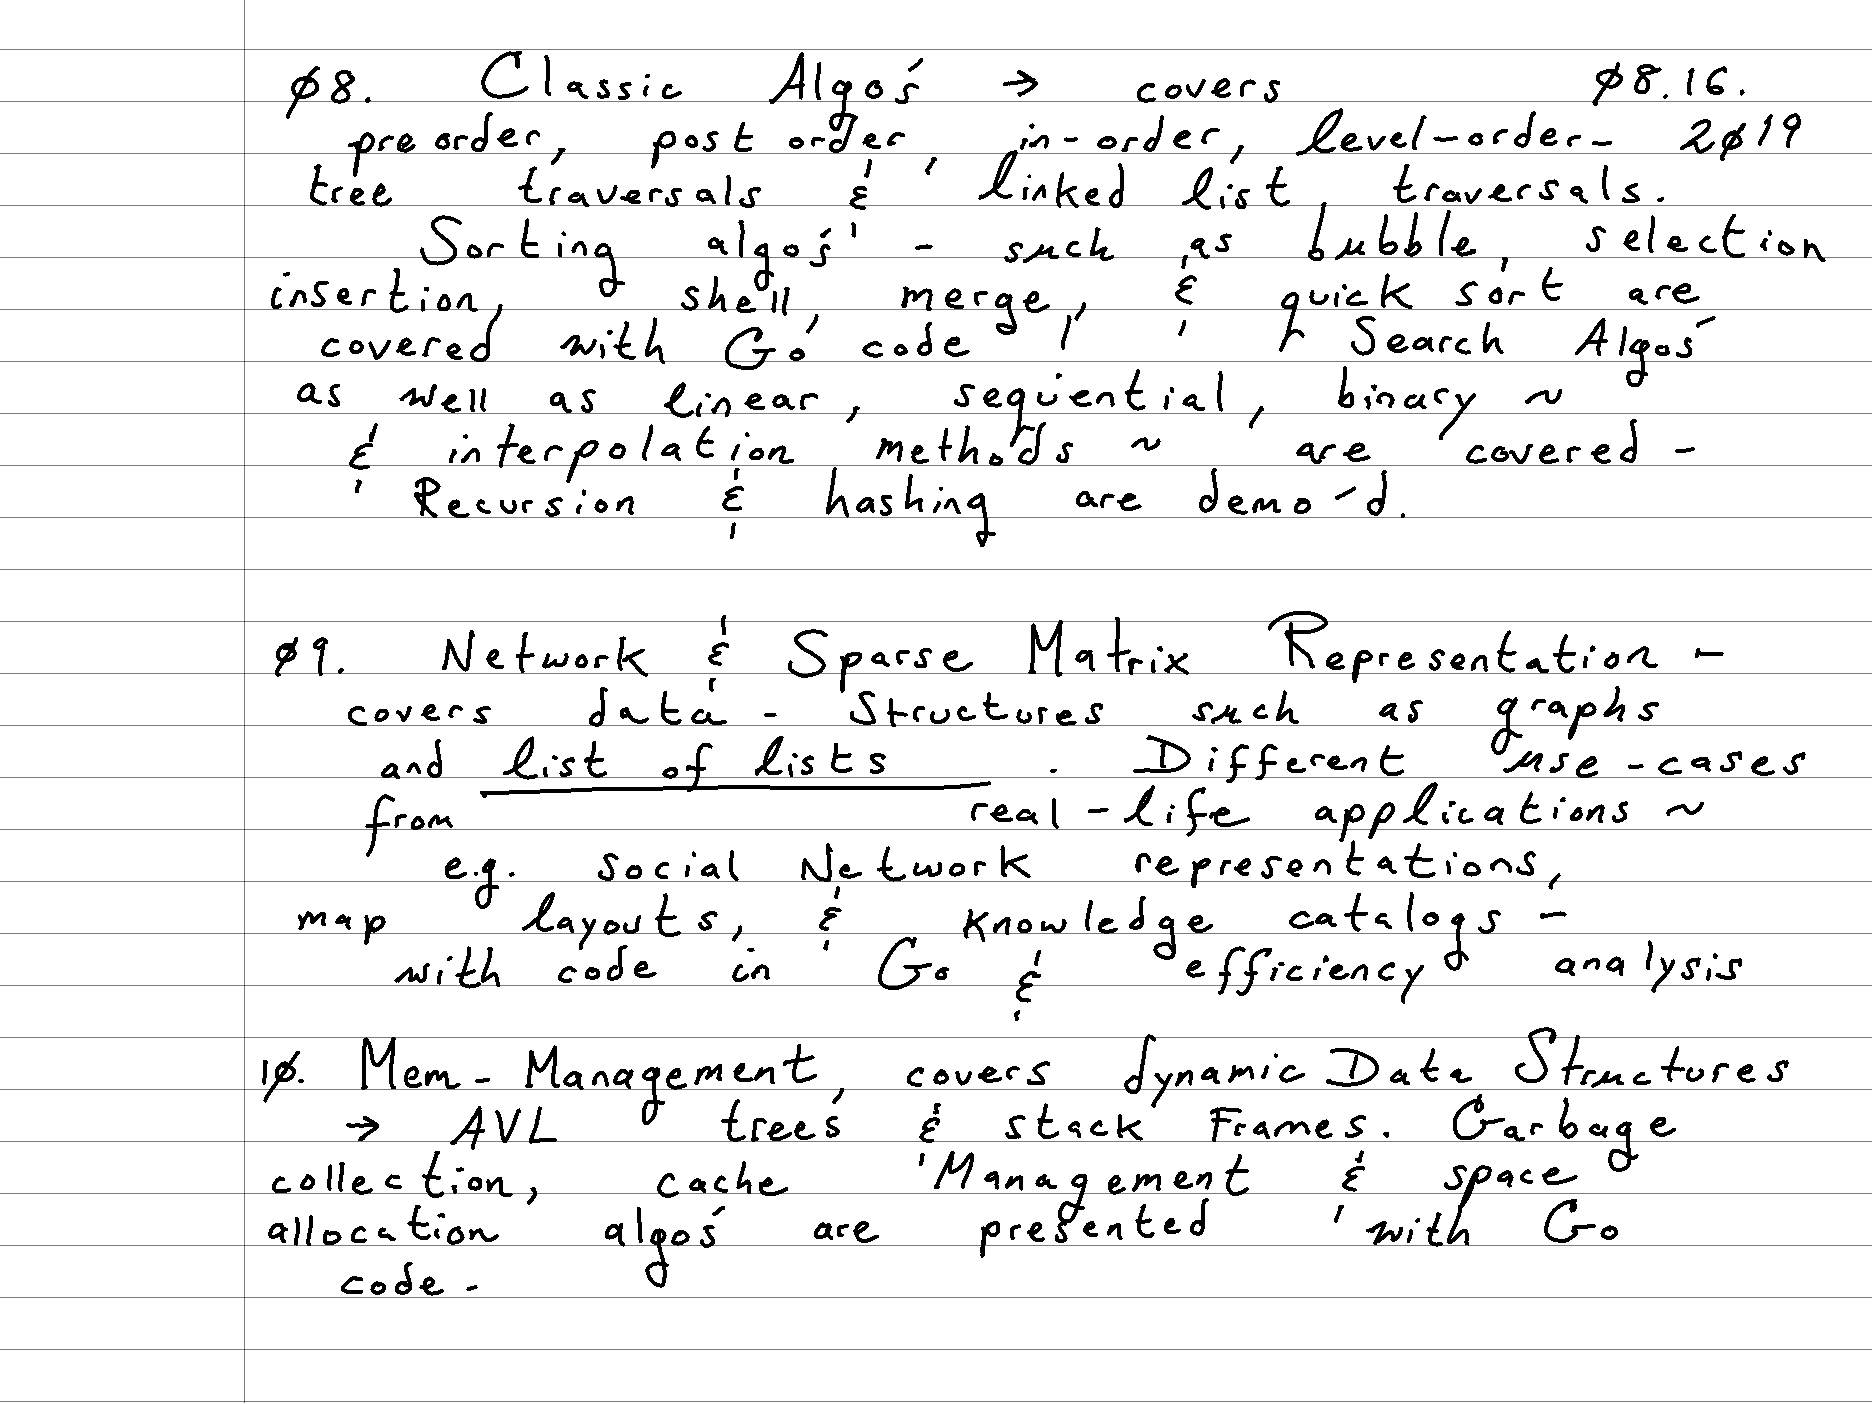 Ø8. Classic Algo's → covers Ø8.16.
pre order, post order, in-order, level-order- 2Ø19
tree traversals & linked list traversals.
Sorting algo's - such as bubble, selection
insertion, shell, merge, & quick sort are
covered with Go code Search Algos
as well as linear, sequential, binary ~
& interpolation methods ~ are covered -
Recursion & hashing are demo-d.
Ø9. Network & Sparse Matrix Representation -
covers data - Structures such as graphs
and list of lists . Different use-cases
from real-life applications ~
e.g. social Network representations,
map layouts, & knowledge catalogs -
with code in Go & efficiency analysis
1Ø. Mem-Management, covers dynamic Data Structures
→ AVL trees & stack Frames. Garbage
collection, cache Management & space
allocation algo's are presented with Go
code -